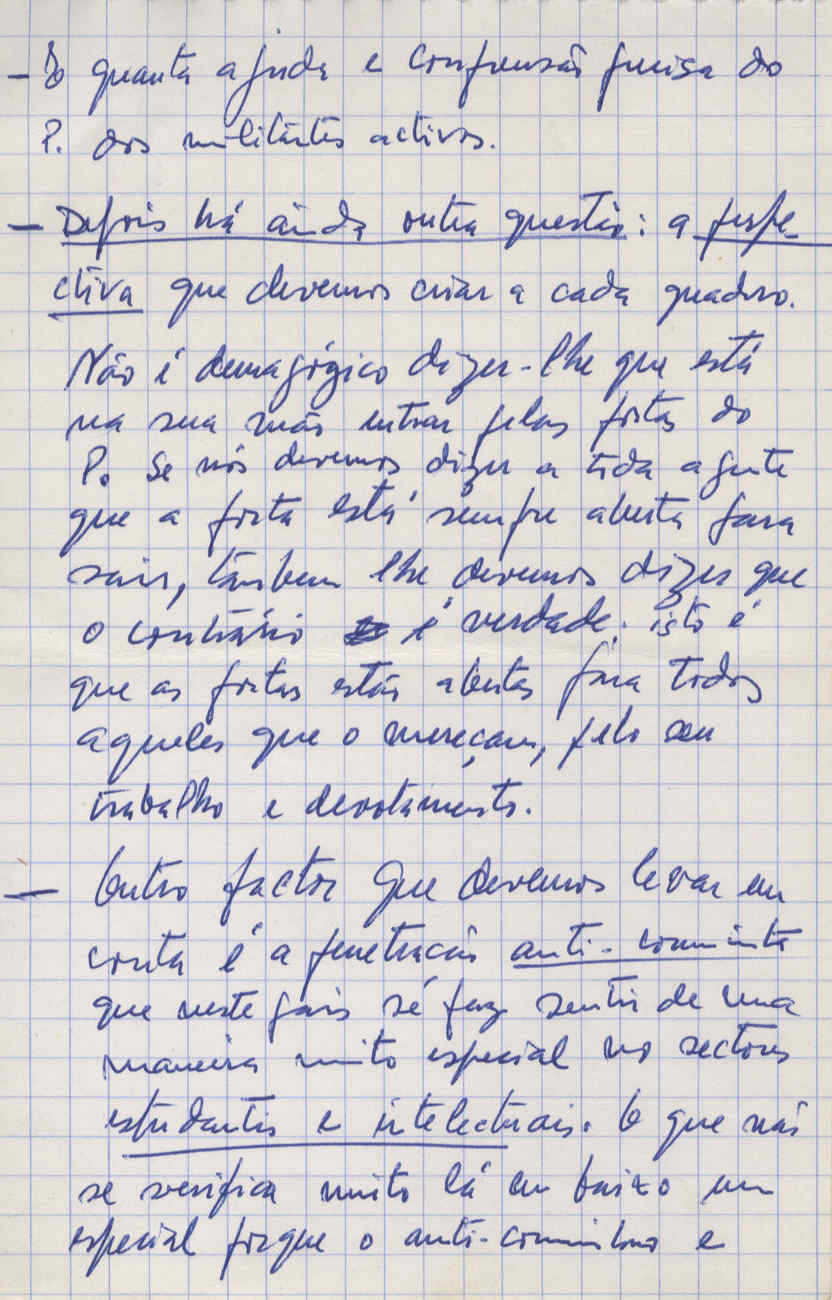 - E quanta ajuda e compreensão precisa do
P. dos militantes activos.
- Depois há ainda outra questão: a perspe-
ctiva que devemos criar a cada quadro.
Não é demagógico dizer-lhe que está
na sua mão entrar pelas portas do
P. Se nós devemos dizer a toda a gente
que a porta está sempre aberta para
sair, também lhe devemos dizer que
o contrário é verdade: isto é
que as portas estão abertas para todos
aqueles que o mereçam, pelo seu
trabalho e devotamento.
- Outro factor que devemos levar em
conta é a penetração anti-comunista
que neste país se faz sentir de uma
maneira muito especial nos sectores
estudantis e intelectuais. O que não
se verifica muito lá em baixo em
especial porque o anti-comunismo e